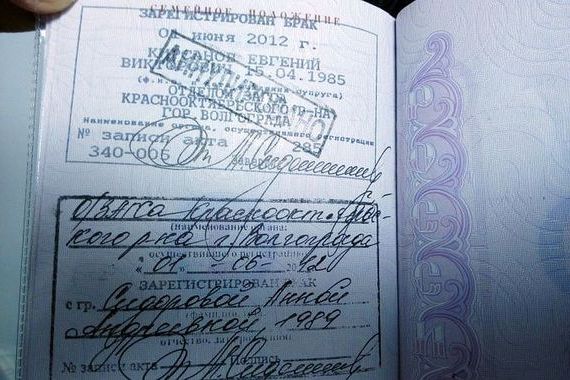 СЕМЕЙНОЕ ПОЛОЖЕНИЕ
ЗАРЕГИСТРИРОВАН БРАК
01 ИЮНЯ 2012 г.
ЕВГЕНИЙ
15.04.1985
супруга)
ОТДЕЛОМ ЗАГСА
КРАСНООКТЯБРЬСКОГО Р-НА
ГОР. ВОЛГОГРАДА
наименование органа, осуществившего регистрацию
№ записи акта 285
340-006
О/ЗАГСа Краснооктябрьс-
кого р-на г. Волгограда
(наименование органа,
осуществившего регистрацию)
"01" 06 2012
ЗАРЕГИСТРИРОВАН БРАК
с гр. Сидоровой Анной
Андреевной, 1989
№ записи акта Подпись